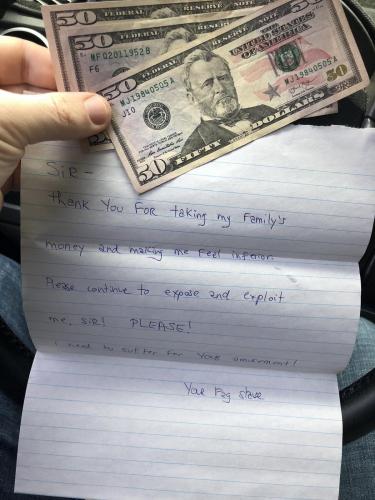 50
FEDERAL RESERVE NOTE
50
MF 02011952 B
F6
50
FEDERAL RESERVE NOTE
50
UNITED STATES
OF AMERICA
MJ 19840505 A
J10
MJ 19840505 A
50
FIFTY DOLLARS
50
SiR -
thank You FoR taking my Family's
money and making me Feel inferior.
Please continue to expose and exploit
me, SiR! PLEASE!
I need to suffer for your amusement!
Your Fag slave